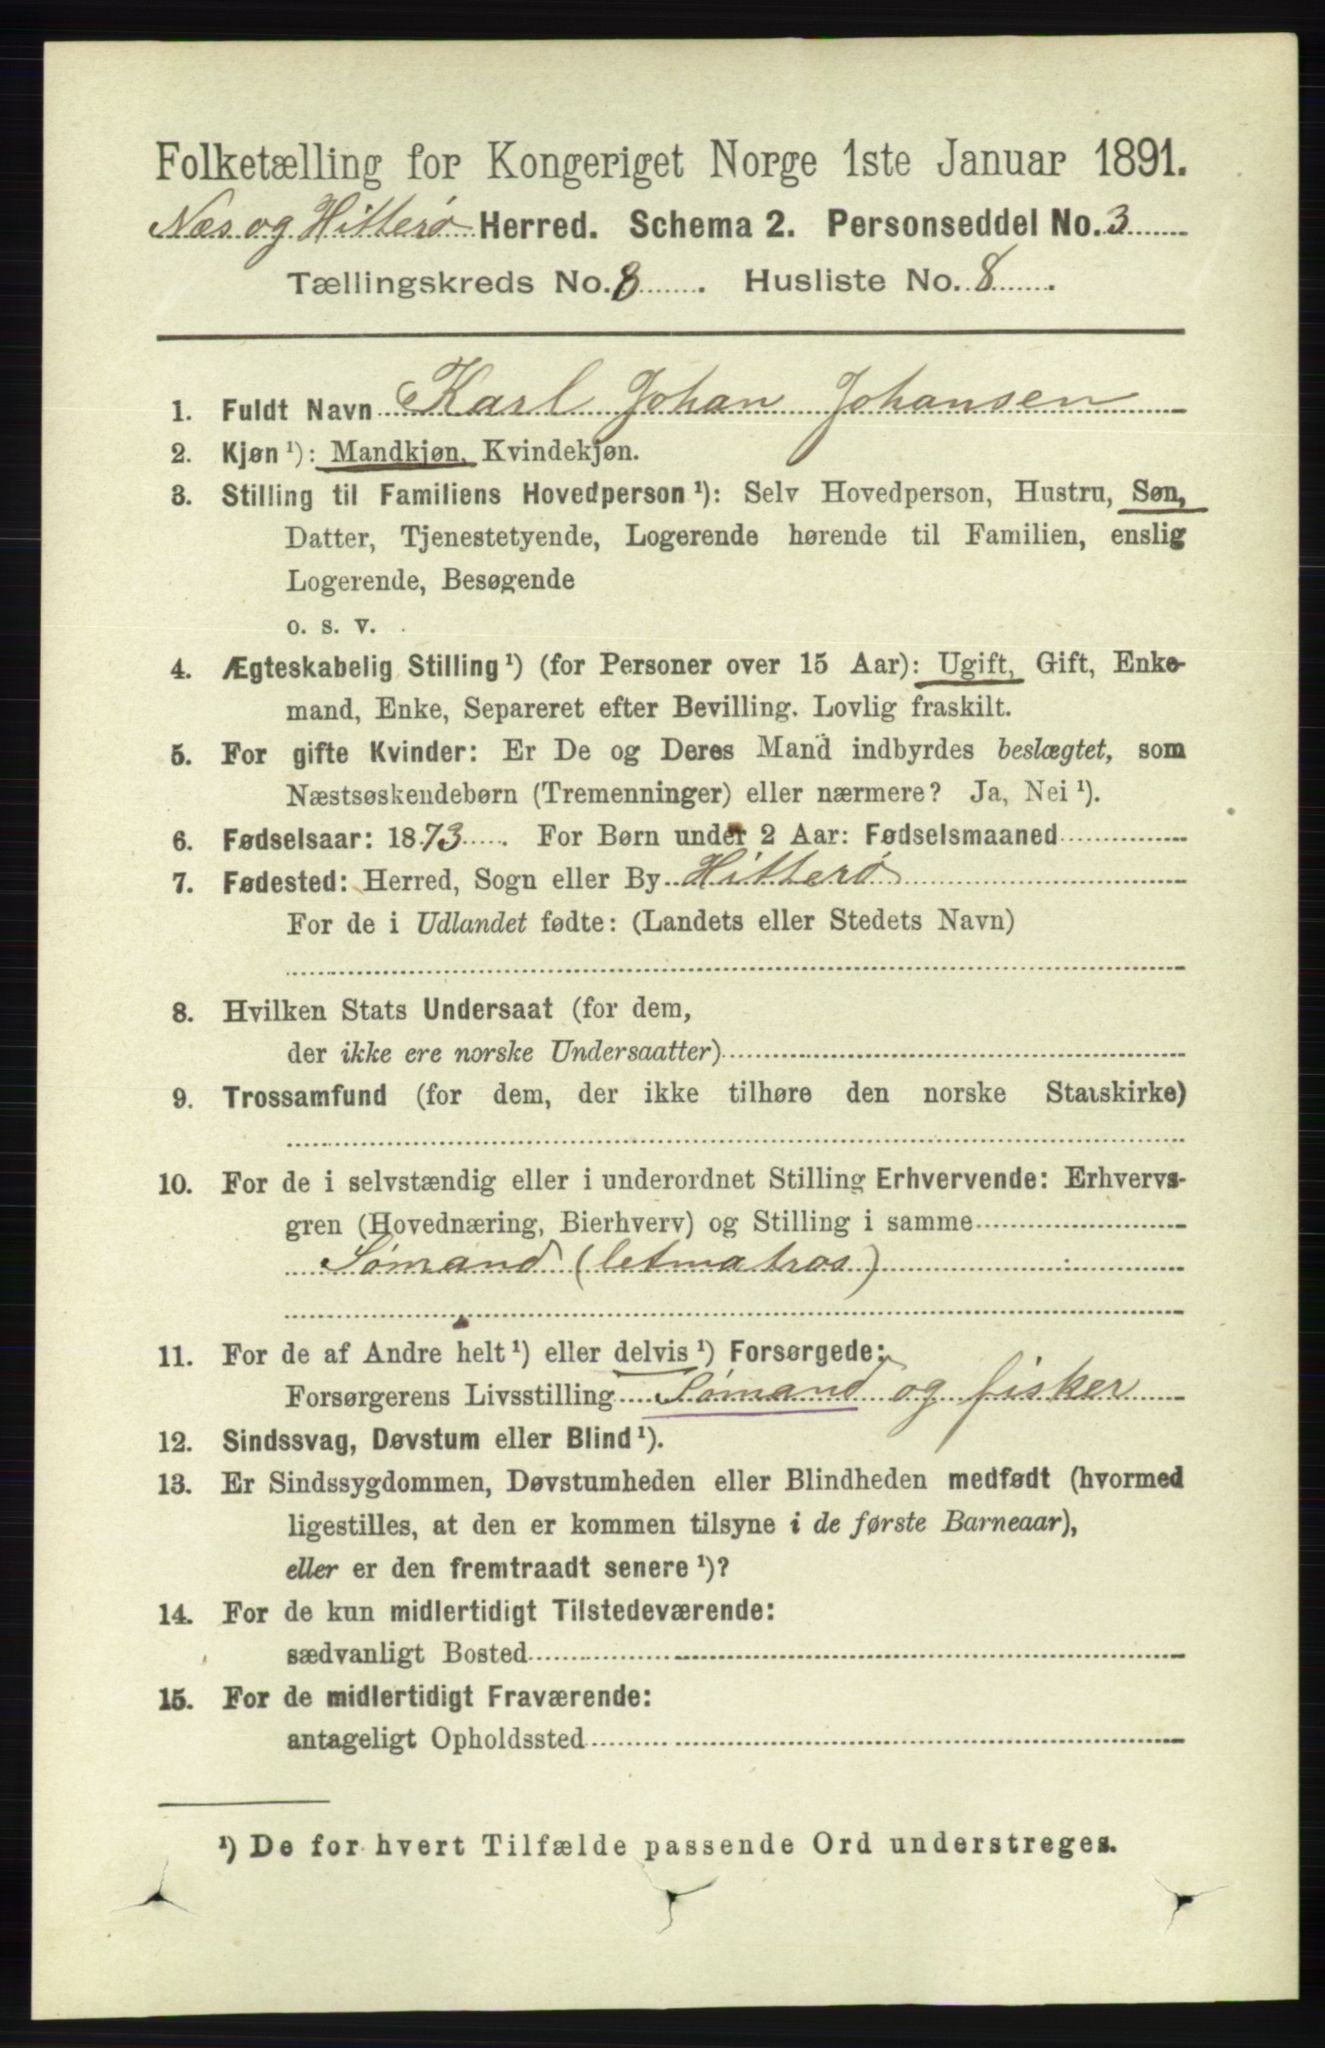 Folketælling for Kongeriget Norge 1ste Januar 1891.
Næs og Hitterø Herred. Schema 2. Personseddel No. 3
Tællingskreds No. 8. Husliste No. 8.
1. Fuldt Navn Karl Johan Johansen
2. Kjøn ¹): Mandkjøn, Kvindekjøn.
3. Stilling til Familiens Hovedperson ¹): Selv Hovedperson, Hustru, Søn,
Datter, Tjenestetyende, Logerende hørende til Familien, enslig
Logerende, Besøgende
o. s. v.
4. Ægteskabelig Stilling ¹) (for Personer over 15 Aar): Ugift, Gift, Enke-
mand, Enke, Separeret efter Bevilling. Lovlig fraskilt.
5. For gifte Kvinder: Er De og Deres Mand indbyrdes beslægtet, som
Næstsøskendebørn (Tremenninger) eller nærmere? Ja, Nei ¹).
6. Fødselsaar: 1873. For Børn under 2 Aar: Fødselsmaaned
7. Fødested: Herred, Sogn eller By Hitterø
For de i Udlandet fødte: (Landets eller Stedets Navn)
8. Hvilken Stats Undersaat (for dem,
der ikke ere norske Undersaatter)
9. Trossamfund (for dem, der ikke tilhøre den norske Statskirke)
10. For de i selvstændig eller i underordnet Stilling Erhvervende: Erhvervs-
gren (Hovednæring, Bierhverv) og Stilling i samme
Sømand (letmatros)
11. For de af Andre helt ¹) eller delvis ¹) Forsørgede:
Forsørgerens Livsstilling Sømand og fisker
12. Sindssvag, Døvstum eller Blind ¹).
13. Er Sindssygdommen, Døvstumheden eller Blindheden medfødt (hvormed
ligestilles, at den er kommen tilsyne i de første Barneaar),
eller er den fremtraadt senere ¹)?
14. For de kun midlertidigt Tilstedeværende:
sædvanligt Bosted
15. For de midlertidigt Fraværende:
antageligt Opholdssted
¹) De for hvert Tilfælde passende Ord understreges.